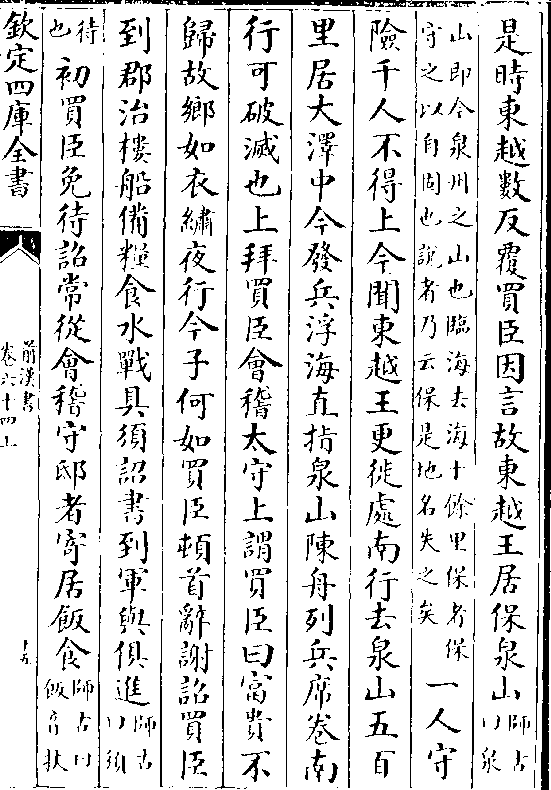 是時東越數反覆買臣因言故東越王居保泉山師古曰泉
山即今泉州之山也臨海去海十餘里保者保守之以自固也說者乃云保是地名失之矣一人守
險千人不得上今聞東越王更徙處南行去泉山五百
里居大澤中今發兵浮海直指泉山陳舟列兵席卷南
行可破滅也上拜買臣會稽太守上謂買臣曰富貴不
歸故鄉如衣繡夜行今子何如買臣頓首辭謝詔買臣
到郡治樓船備糧食水戰具須詔書到軍與俱進師古曰須
待也初買臣免待詔常從會稽守邸者寄居飯食師古曰飯音扶
欽定四庫全書
前漢書
卷六十四上
十五